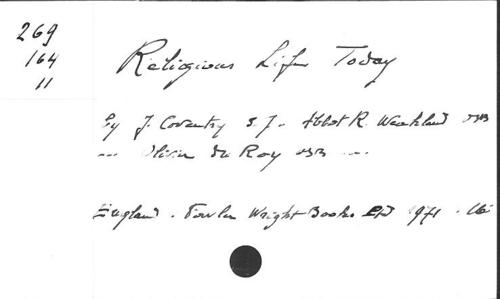 269
164
11
Religious Life Today
By J. Coventry S.J. - Abbot R. Weakland OSB
--- Olivier du Roy OSB ---
England . Fowler Wright Books Ltd 1971 .